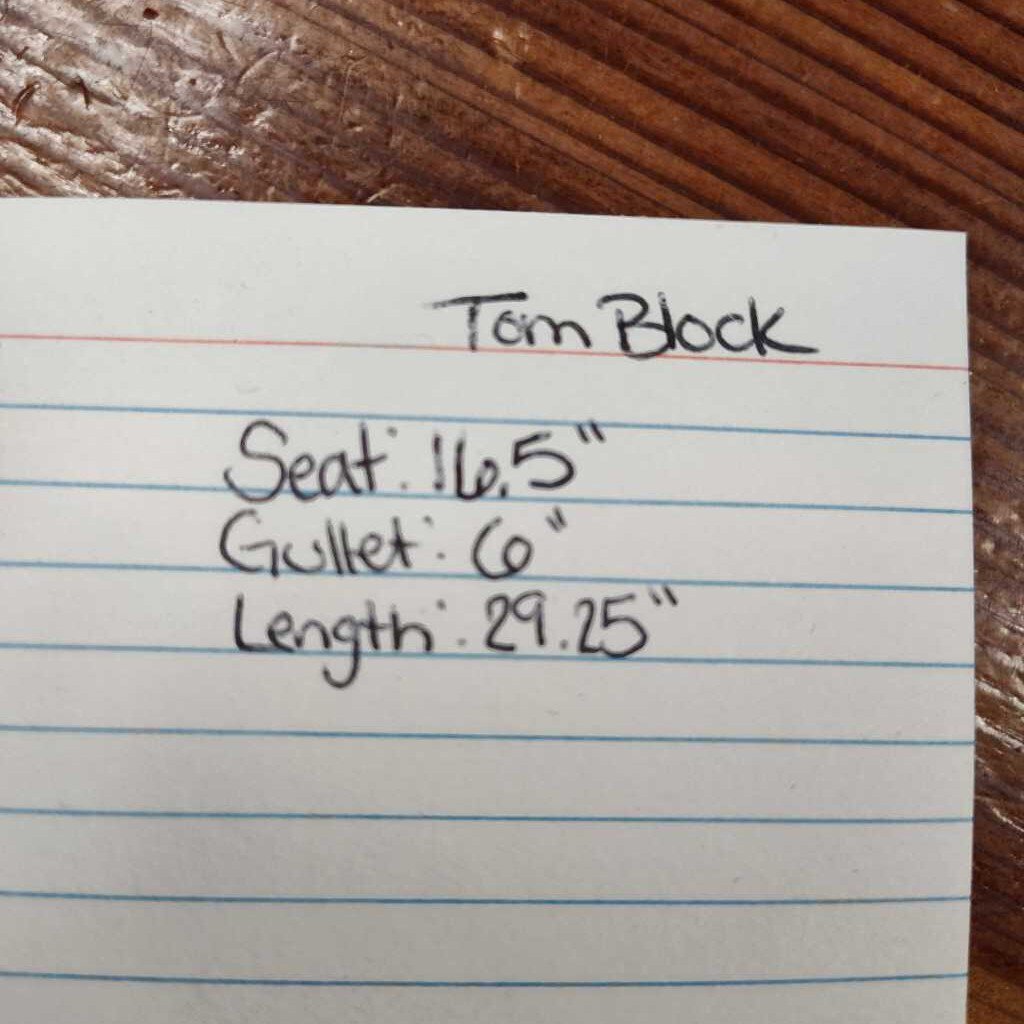 Tom Block
Seat: 16.5"
Gullet: 6"
Length: 29.25"